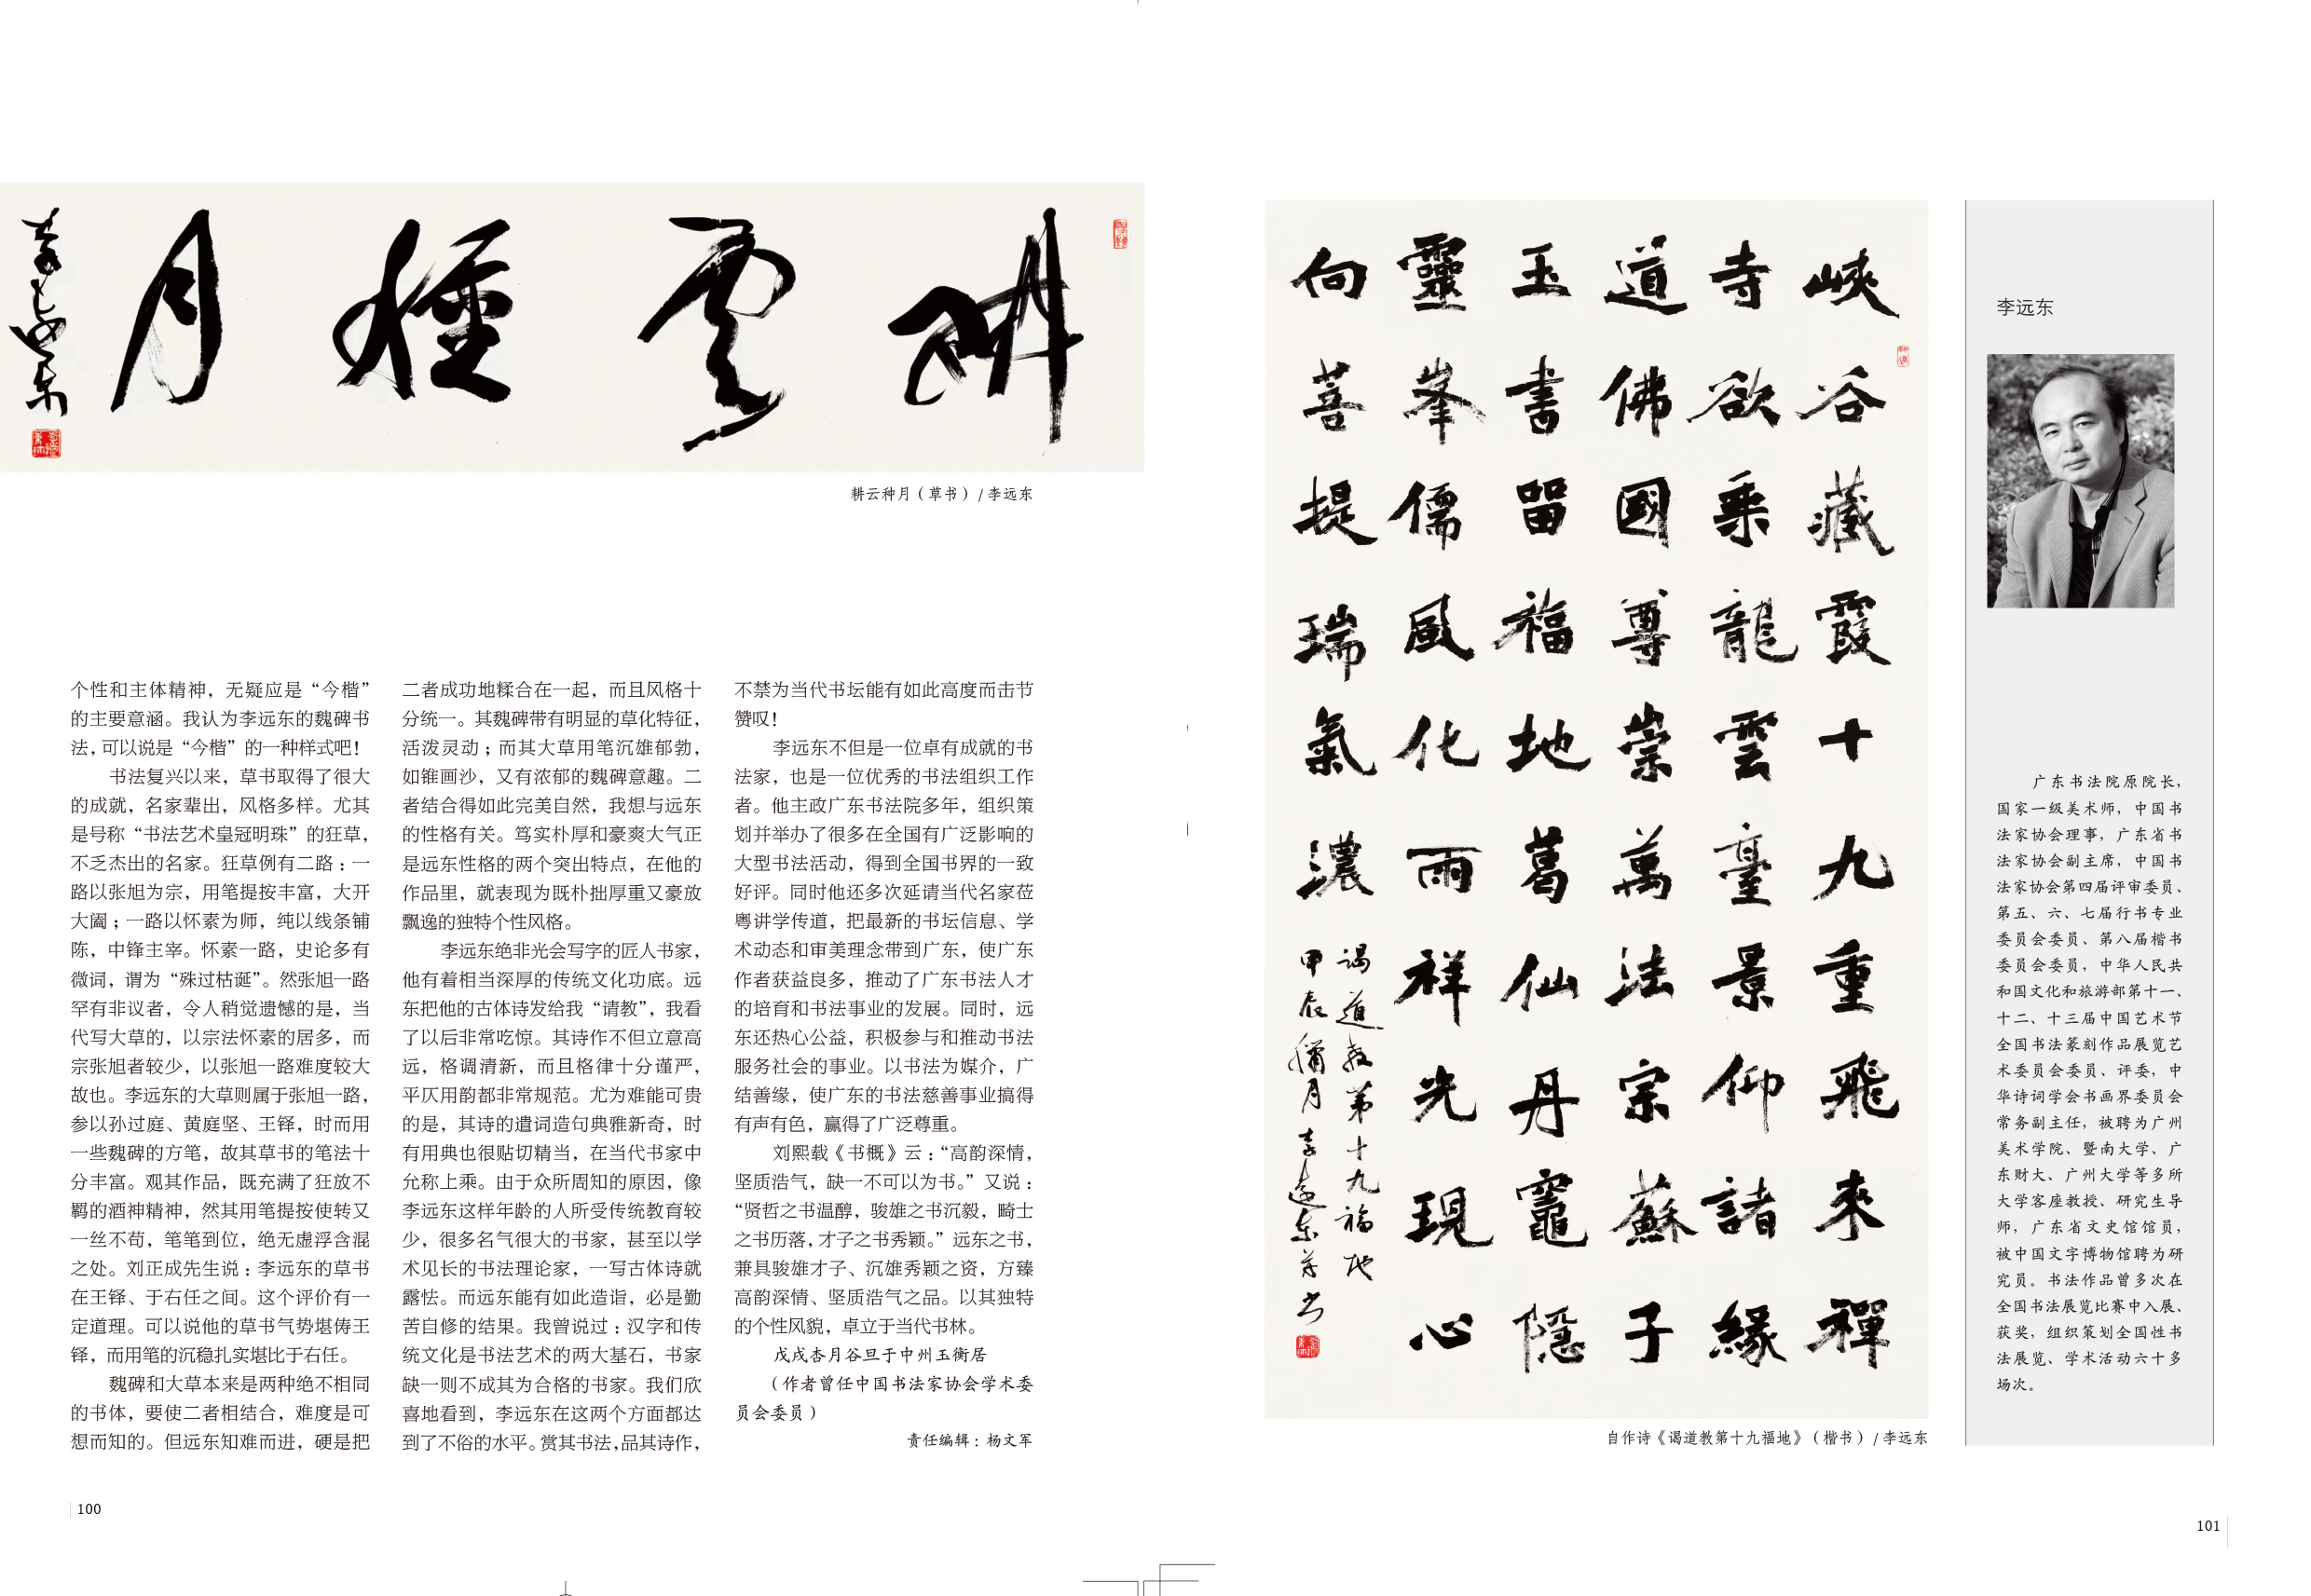 耕雲種月
李远东
耕云种月（草书）/ 李远东
个性和主体精神，无疑应是“今楷”
的主要意涵。我认为李远东的魏碑书
法，可以说是“今楷”的一种样式吧！
书法复兴以来，草书取得了很大
的成就，名家辈出，风格多样。尤其
是号称“书法艺术皇冠明珠”的狂草，
不乏杰出的名家。狂草例有二路：一
路以张旭为宗，用笔提按丰富，大开
大阖；一路以怀素为师，纯以线条铺
陈，中锋主宰。怀素一路，史论多有
微词，谓为“殊过枯诞”。然张旭一路
罕有非议者，令人稍觉遗憾的是，当
代写大草的，以宗法怀素的居多，而
宗张旭者较少，以张旭一路难度较大
故也。李远东的大草则属于张旭一路，
参以孙过庭、黄庭坚、王铎，时而用
一些魏碑的方笔，故其草书的笔法十
分丰富。观其作品，既充满了狂放不
羁的酒神精神，然其用笔提按使转又
一丝不苟，笔笔到位，绝无虚浮含混
之处。刘正成先生说：李远东的草书
在王铎、于右任之间。这个评价有一
定道理。可以说他的草书气势堪俦王
铎，而用笔的沉稳扎实堪比于右任。
魏碑和大草本来是两种绝不相同
的书体，要使二者相结合，难度是可
想而知的。但远东知难而进，硬是把
二者成功地糅合在一起，而且风格十
分统一。其魏碑带有明显的草化特征，
活泼灵动；而其大草用笔沉雄郁勃，
如锥画沙，又有浓郁的魏碑意趣。二
者结合得如此完美自然，我想与远东
的性格有关。笃实朴厚和豪爽大气正
是远东性格的两个突出特点，在他的
作品里，就表现为既朴拙厚重又豪放
飘逸的独特个性风格。
李远东绝非光会写字的匠人书家，
他有着相当深厚的传统文化功底。远
东把他的古体诗发给我“请教”，我看
了以后非常吃惊。其诗作不但立意高
远，格调清新，而且格律十分谨严，
平仄用韵都非常规范。尤为难能可贵
的是，其诗的遣词造句典雅新奇，时
有用典也很贴切精当，在当代书家中
允称上乘。由于众所周知的原因，像
李远东这样年龄的人所受传统教育较
少，很多名气很大的书家，甚至以学
术见长的书法理论家，一写古体诗就
露怯。而远东能有如此造诣，必是勤
苦自修的结果。我曾说过：汉字和传
统文化是书法艺术的两大基石，书家
缺一则不成其为合格的书家。我们欣
喜地看到，李远东在这两个方面都达
到了不俗的水平。赏其书法，品其诗作，
不禁为当代书坛能有如此高度而击节
赞叹！
李远东不但是一位卓有成就的书
法家，也是一位优秀的书法组织工作
者。他主政广东书法院多年，组织策
划并举办了很多在全国有广泛影响的
大型书法活动，得到全国书界的一致
好评。同时他还多次延请当代名家莅
粤讲学传道，把最新的书坛信息、学
术动态和审美理念带到广东，使广东
作者获益良多，推动了广东书法人才
的培育和书法事业的发展。同时，远
东还热心公益，积极参与和推动书法
服务社会的事业。以书法为媒介，广
结善缘，使广东的书法慈善事业搞得
有声有色，赢得了广泛尊重。
刘熙载《书概》云：“高韵深情，
坚质浩气，缺一不可以为书。”又说：
“贤哲之书温醇，骏雄之书沉毅，畸士
之书历落，才子之书秀颖。”远东之书，
兼具骏雄才子、沉雄秀颖之资，方臻
高韵深情、坚质浩气之品。以其独特
的个性风貌，卓立于当代书林。
戊戌杏月谷旦于中州玉衡居
（作者曾任中国书法家协会学术委
员会委员）
责任编辑：杨文军
100
峽谷藏霞十九重飛來禪
寺欲乘龍雲臺景仰諸緣
道佛國尊崇萬法宗蘇子
玉書留福地葛仙丹竈隱
靈峯儒風化雨祥光現心
向菩提瑞氣濃
谒道教第十九福地
甲辰臘月李遠东并书
自作诗《谒道教第十九福地》（楷书）/ 李远东
李远东
广东书法院原院长，
国家一级美术师，中国书
法家协会理事，广东省书
法家协会副主席，中国书
法家协会第四届评审委员、
第五、六、七届行书专业
委员会委员、第八届楷书
委员会委员，中华人民共
和国文化和旅游部第十一、
十二、十三届中国艺术节
全国书法篆刻作品展览艺
术委员会委员、评委，中
华诗词学会书画界委员会
常务副主任，被聘为广州
美术学院、暨南大学、广
东财大、广州大学等多所
大学客座教授、研究生导
师，广东省文史馆馆员，
被中国文字博物馆聘为研
究员。书法作品曾多次在
全国书法展览比赛中入展、
获奖，组织策划全国性书
法展览、学术活动六十多
场次。
101